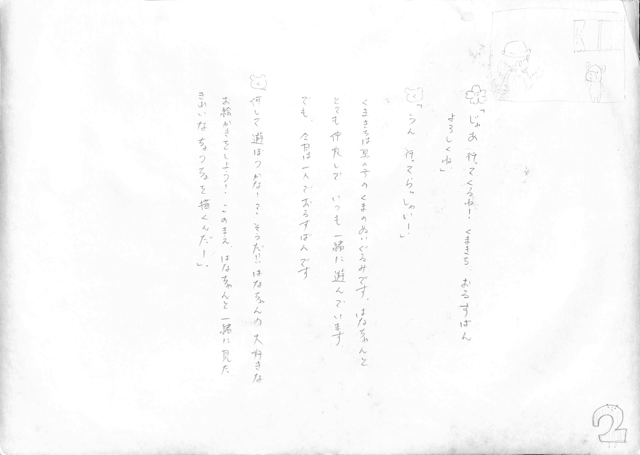 「じゃあ 行ってくるね! くまきち おるすばん
よろしくね」
「うん 行ってらっしゃいー!」
くまきちは男の子のくまのぬいぐるみです。はなちゃんと
とても仲良しで いつも一緒に遊んでいます。
でも、今日は一人でおるすばんです
何して遊ぼうかな~? そうだ!! はなちゃんの大好きな
お絵かきをしよう! このまえ はなちゃんと一緒に見た
きれいなちょうちょを描くんだー!」。
2